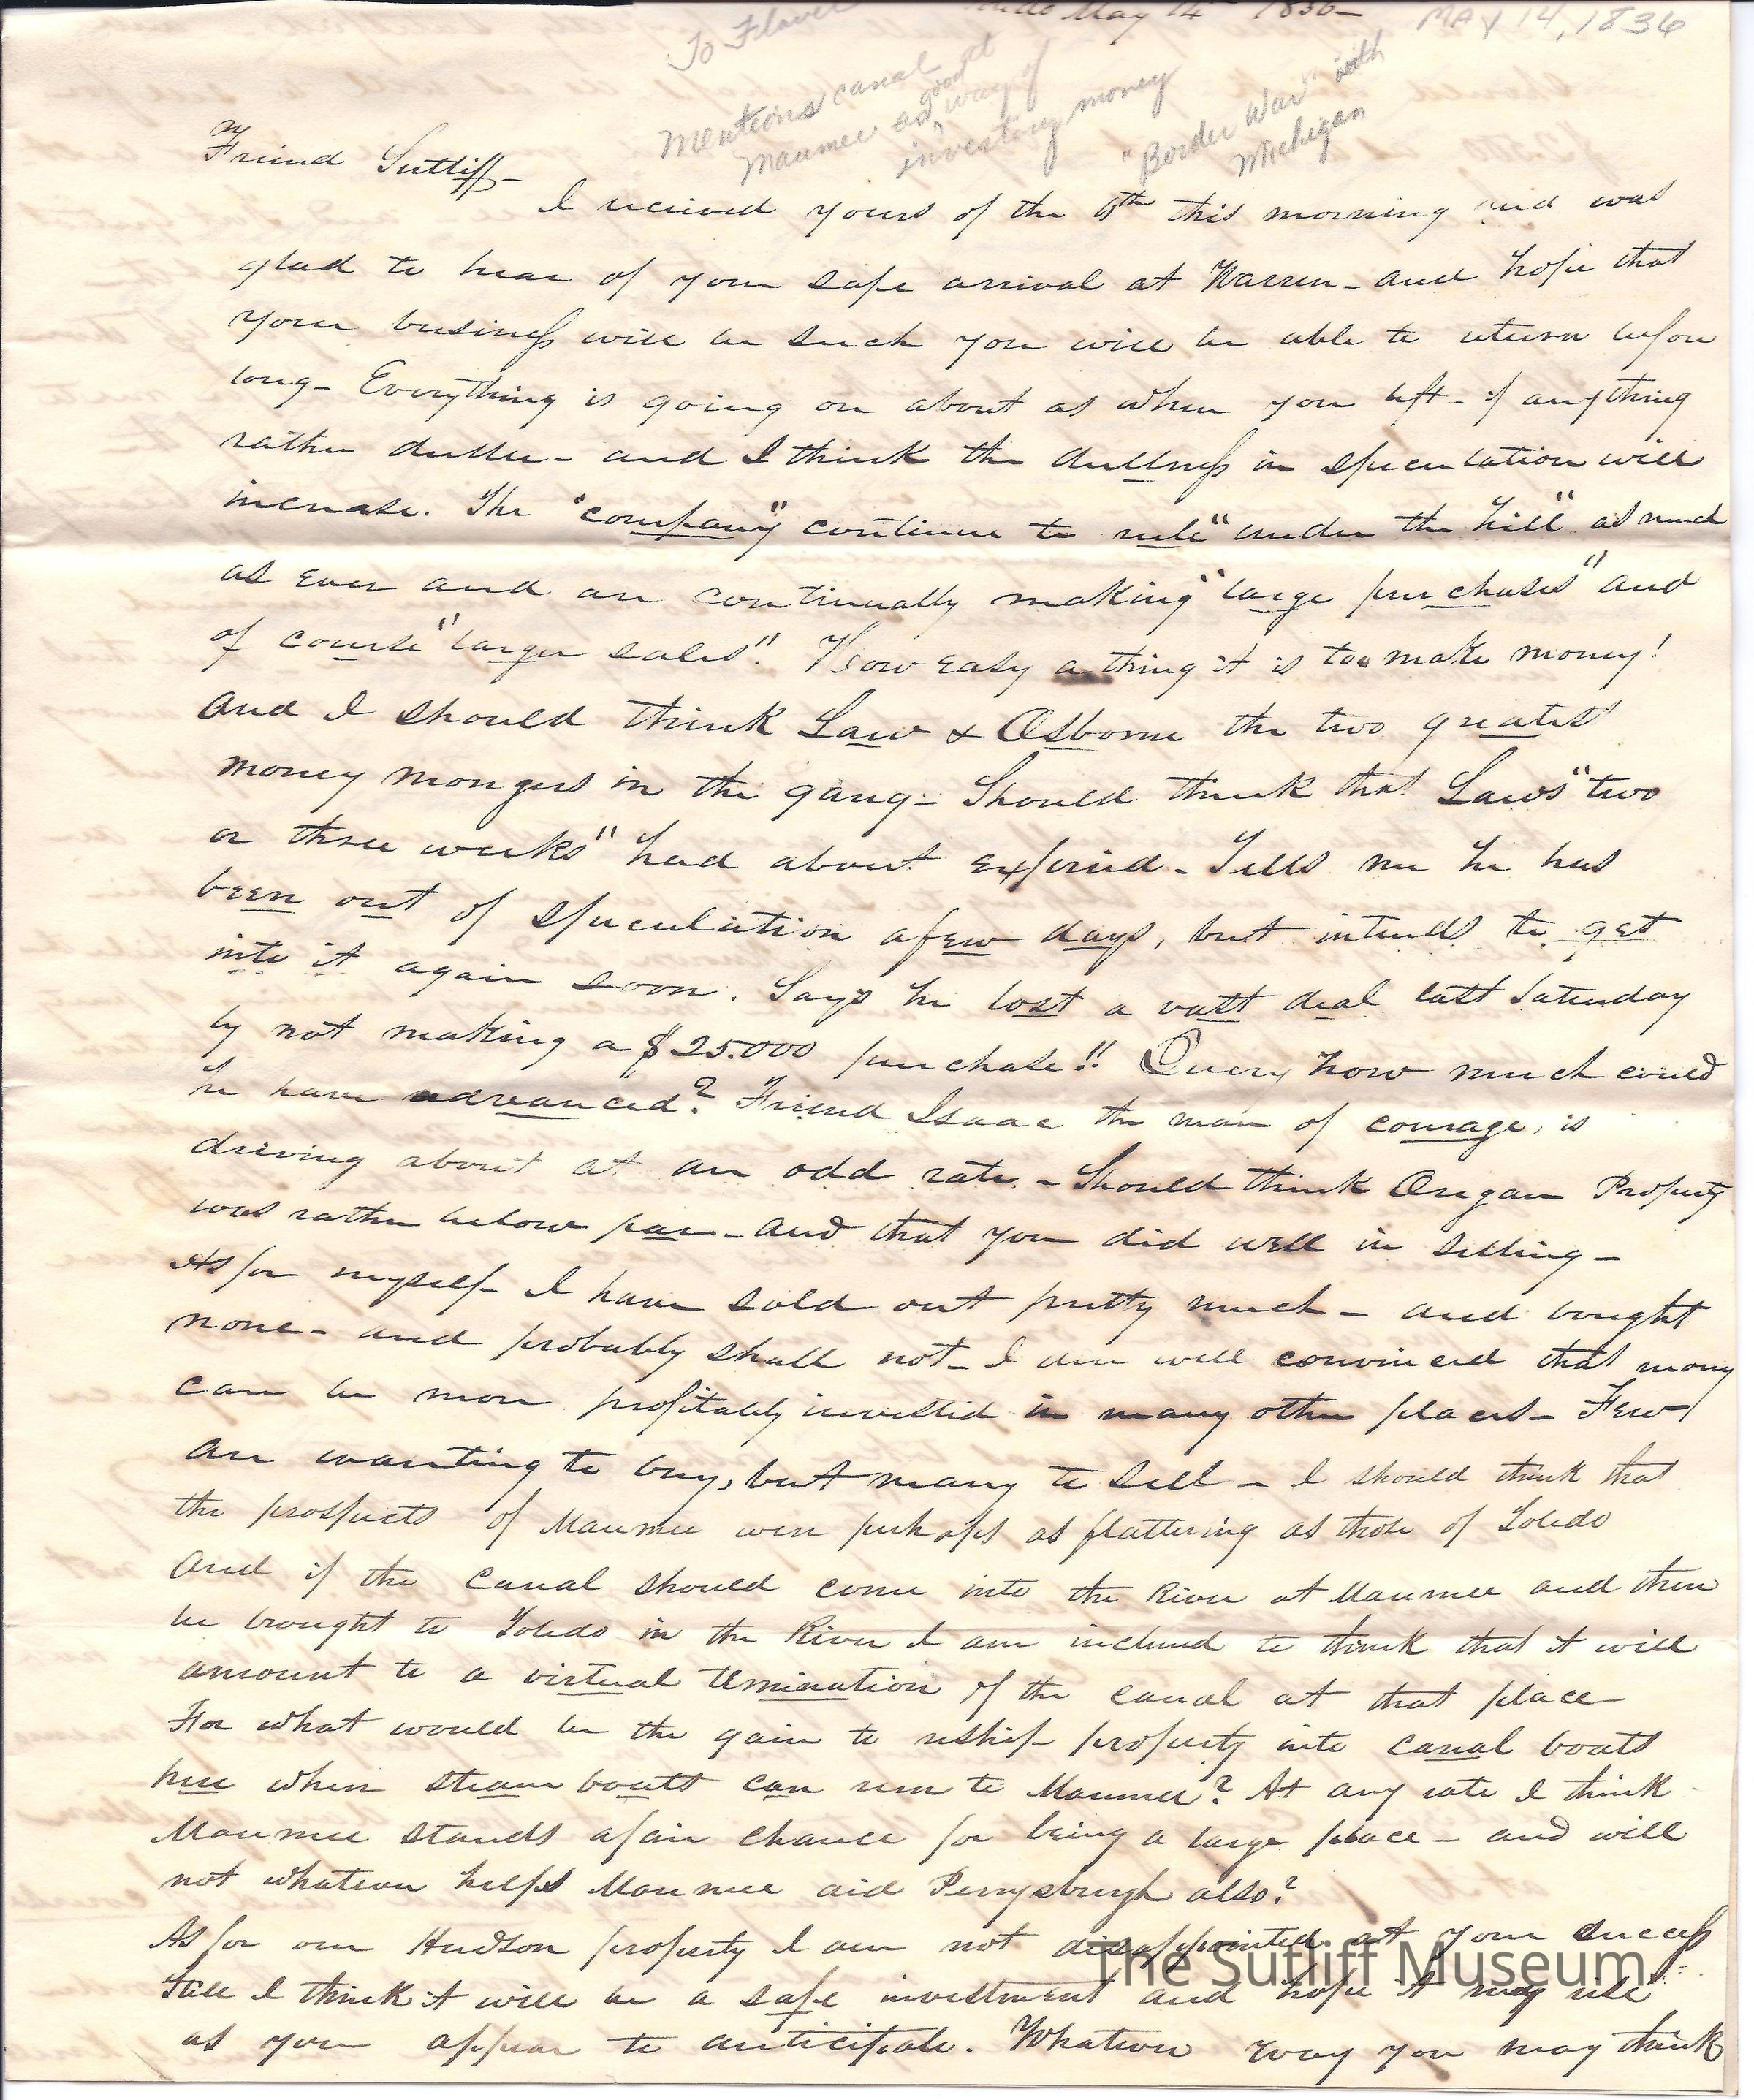 To Flavel
May 14th 1836 -
MAY 14, 1836
Mentions canal
Maumee as good
"way of
investing money
"Border War" with
Michigan
Friend Sutliff -
I received yours of the 6th this morning and was
glad to hear of your safe arrival at Warren - and hope that
your business will be such you will be able to return before
long - Everything is going on about as when you left - if anything
rather duller - and I think the dullness in speculation will
increase. The "company" continue to rule "under the hill" as much
as ever and are continually making "large purchases" and
of course "larger sales". How easy a thing it is to make money!
And I should think Law & Osborne the two greatest
money mongers in the gang - Should think that Laws "two
or three weeks" had about expired - Tells me he has
been out of speculation a few days, but intends to get
into it again soon. Says he lost a vast deal last Saturday
by not making a $25.000 purchase!! Query how much could
he have advanced? Friend Isaac the man of courage, is
driving about at an odd rate - Should think Oregan Property
was rather below par - and that you did well in selling -
As for myself I have sold out pretty much - and bought
none - and probably shall not - I am well convinced that money
can be more profitably invested in many other places - Few
are wanting to buy, but many to sell - I should think that
the prospects of Maumee were perhaps as flattering as those of Toledo
And if the canal should come into the River at Maumee and then
be brought to Toledo in the River I am inclined to think that it will
amount to a virtual termination of the canal at that place
For what would be the gain to reship property into canal boats
here when steam boats can run to Maumee? At any rate I think
Maumee stands a fair chance for being a large place - and will
not whatever helps Maumee aid Perrysburgh also?
As for our Hudson property I am not disappointed at your success
I think it will be a safe investment and hope it may rise
as you appear to anticipate. Whatever way you may think
The Sutliff Museum